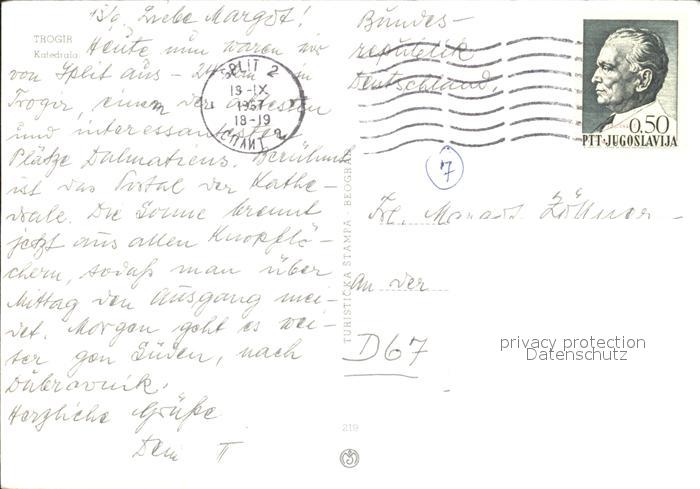 13/9. Liebe Margot!
TROGIR
Katedrala
Heute nun waren wir
von Split aus – 24 km – in
Trogir, einem der ältesten
und interessantesten
Plätze Dalmatiens. Berühmt
ist das Portal der Kathe-
drale. Die Sonne brennt
jetzt aus allen Knopflö-
chern, sodaß man über
Mittag den Ausgang mei-
det. Morgen geht es wei-
ter gen Süden, nach
Dubrovnik.
Herzliche Grüße
Dein
SPLIT 2
13-IX
1967
18-19
СПЛИТ 2
TURISTIČKA ŠTAMPA - BEOGRAD
219
Bundes-
republik
Deutschland.
0.50
PTT·JUGOSLAVIJA
7
Frl. Zöllner
An der
D67
privacy protection
Datenschutz